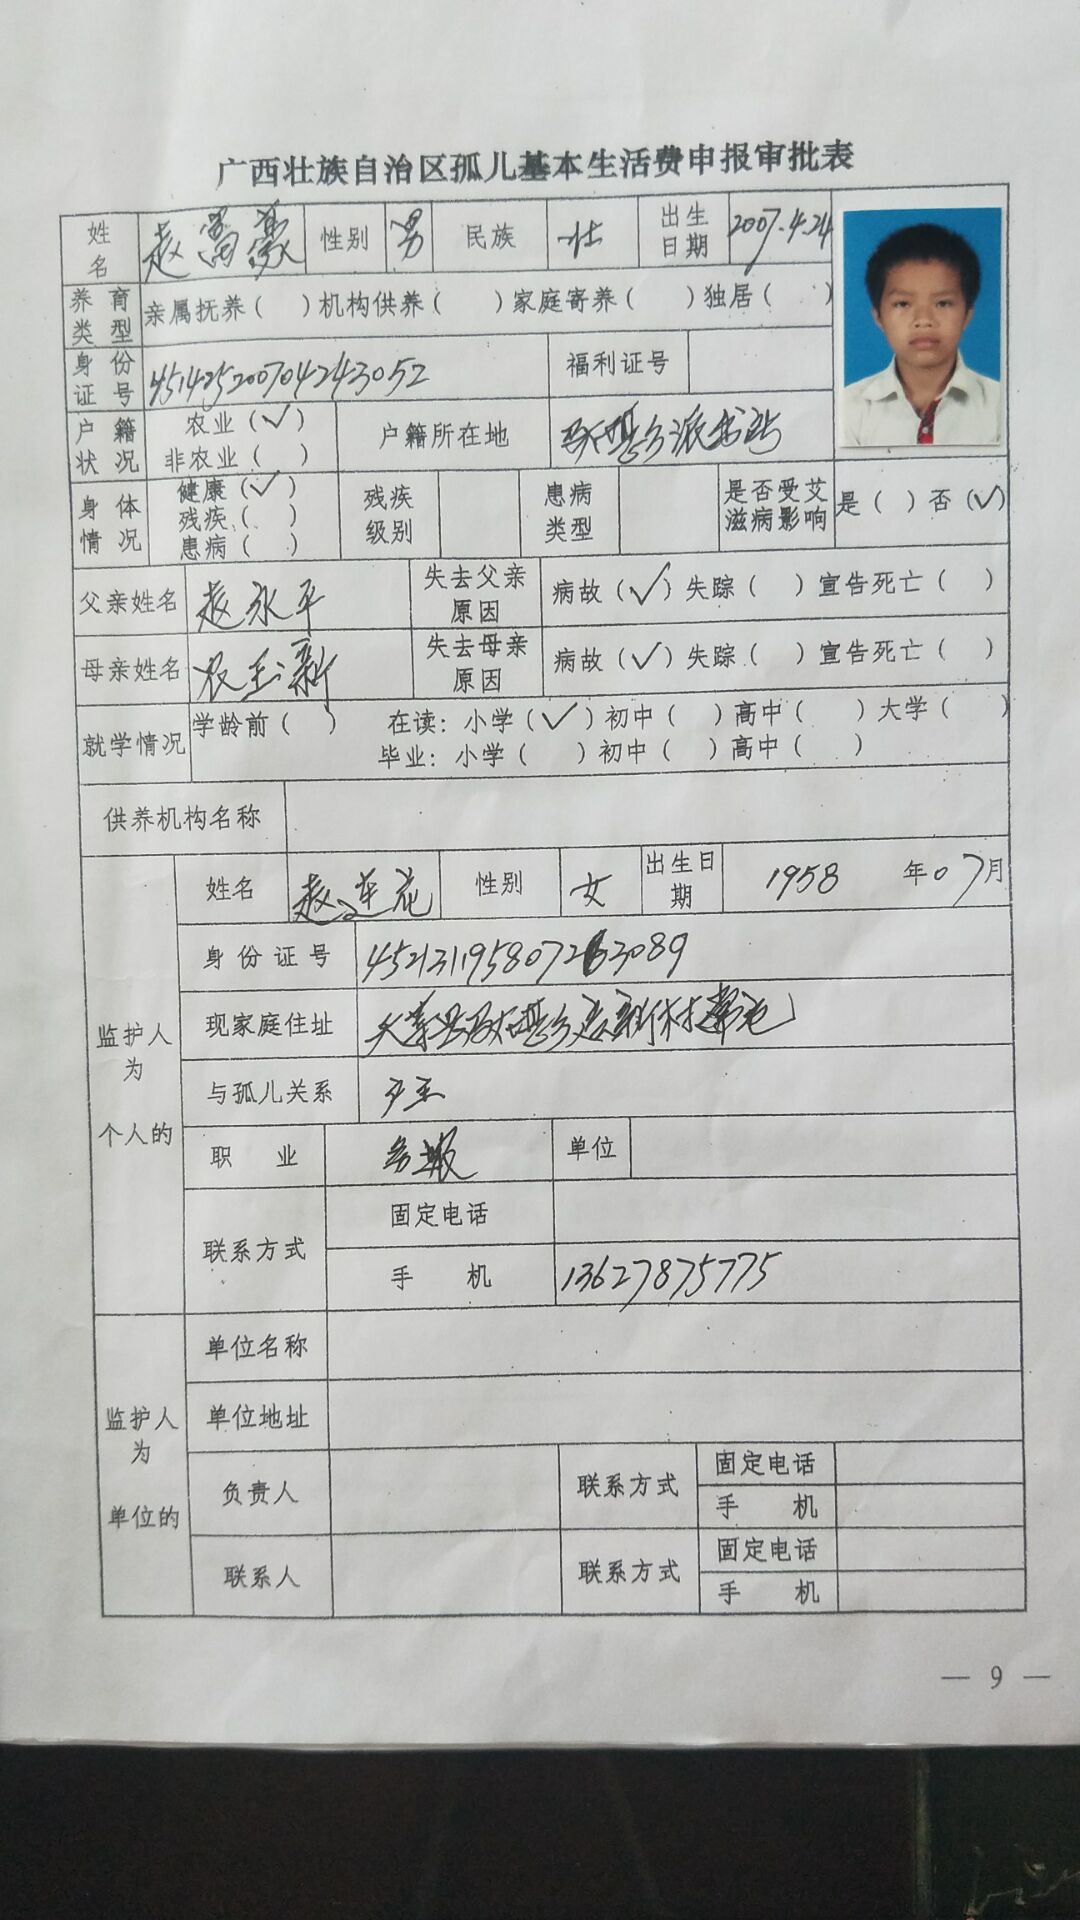 广西壮族自治区孤儿基本生活费申报审批表
姓名 赵富豪 性别 男 民族 壮 出生日期 2007.4.24
养育类型 亲属抚养( )机构供养( )家庭寄养( )独居( )
身份证号 451425200704243052 福利证号
户籍状况 农业(✓) 非农业( ) 户籍所在地 派出所
身体情况 健康(✓) 残疾( ) 患病( ) 残疾级别 患病类型 是否受艾滋病影响 是( )否(✓)
父亲姓名 赵永平 失去父亲原因 病故(✓)失踪( )宣告死亡( )
母亲姓名 农玉新 失去母亲原因 病故(✓)失踪( )宣告死亡( )
就学情况 学龄前( ) 在读:小学(✓)初中( )高中( )大学( )
毕业:小学( )初中( )高中( )
供养机构名称
监护人为个人的
姓名 赵莲花 性别 女 出生日期 1958 年07月
身份证号 4521311958072 3089
现家庭住址
与孤儿关系 户主
职业 单位
联系方式 固定电话
手机 13627875775
监护人为单位的
单位名称
单位地址
负责人 联系方式 固定电话
手机
联系人 联系方式 固定电话
手机
— 9 —